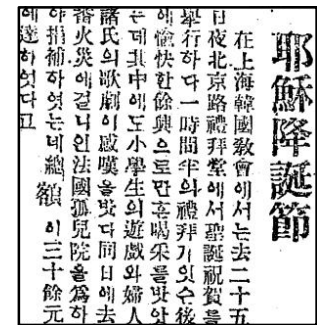 耶穌降誕節
在上海韓國敎會에서는去二十五
日夜北京路禮拜堂에서聖誕祝賀를
擧行하다一時間半의禮拜가잇슨後
에愉快한餘興으로만흔喝采를밧앗
는데其中에도小學生의遊戱와婦人
諸氏의歌劇이感嘆을밧다同日에去
番火災에걸니인法國孤兒院을爲하
야捐補하엿는네總額이三十餘元
에達하엿다고